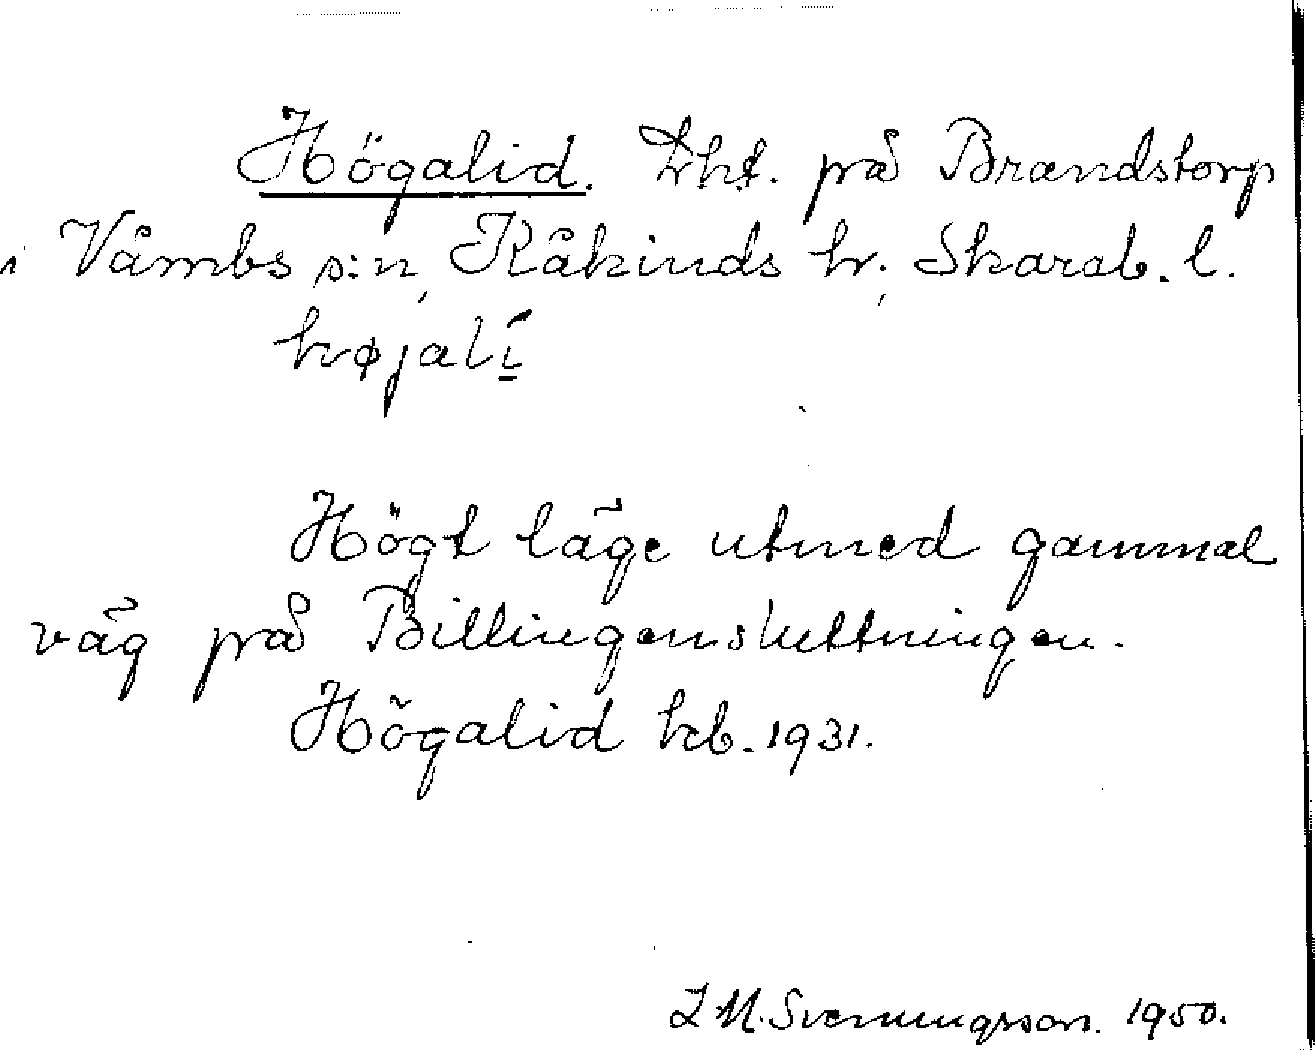 Högalid. Lht. på Brandstorp
i Våmbs s:n, Kåkinds hr, Skarab. l.
højalí
Högt läge utmed gammal
väg på Billingensluttningen.
Högalid hcb. 1931.
I M. Svenningsson. 1950.